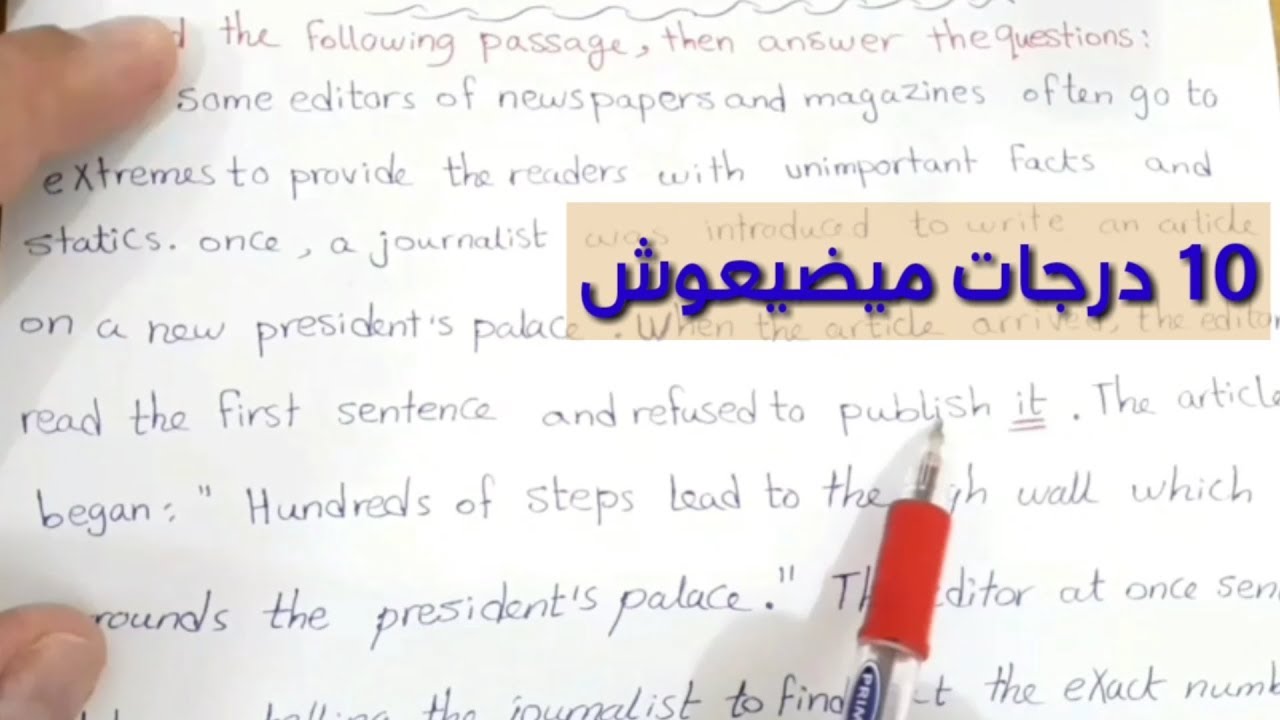 the following passage, then answer the questions:
Some editors of newspapers and magazines often go to
extremes to provide the readers with unimportant facts and
statics. once, a journalist was introduced to write an article
10 درجات ميضيعوش
on a new president's palace. When the article arrived, the editor
read the first sentence and refused to publish it. The article
began: " Hundreds of steps lead to the wall which
the president's palace." editor at once
the journalist to find the exact
PRIM